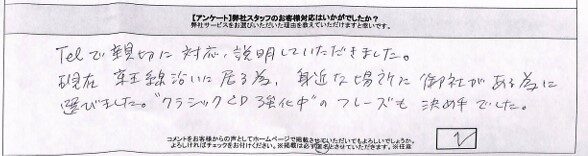 【アンケート】弊社スタッフのお客様対応はいかがでしたか？
弊社サービスをお選びいただいた理由を教えていただけますと幸いです。
Telで親切に対応、説明していただきました。
現在 京王線沿いに居る為、身近な場所に御社がある為に
選びました。"クラシックCD強化中"のフレーズも決め手でした。
コメントをお客様からの声としてホームページで掲載させていただいてもよろしいでしょうか。
よろしければチェックをお付けください。※掲載は必ず匿名とさせていただきます。※任意